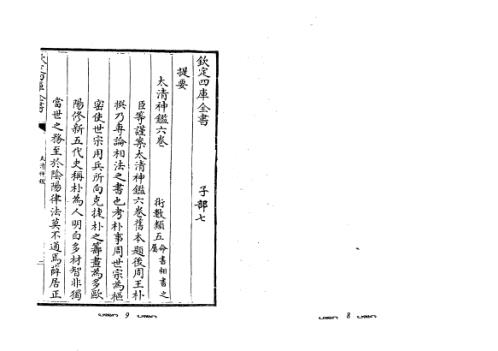 欽定四庫全書 子部七
提要 術數類五命書相書之屬
太清神鑑六卷
臣等謹案太清神鑑六卷舊本題後周王朴
撰乃專論相法之書也考朴事周世宗為樞
密使世宗用兵所向克捷朴之籌畫為多歐
陽修新五代史稱朴為人明白多材智非獨
當世之務至於陰陽律法莫不通焉薛居正
太清神鑑
9
8